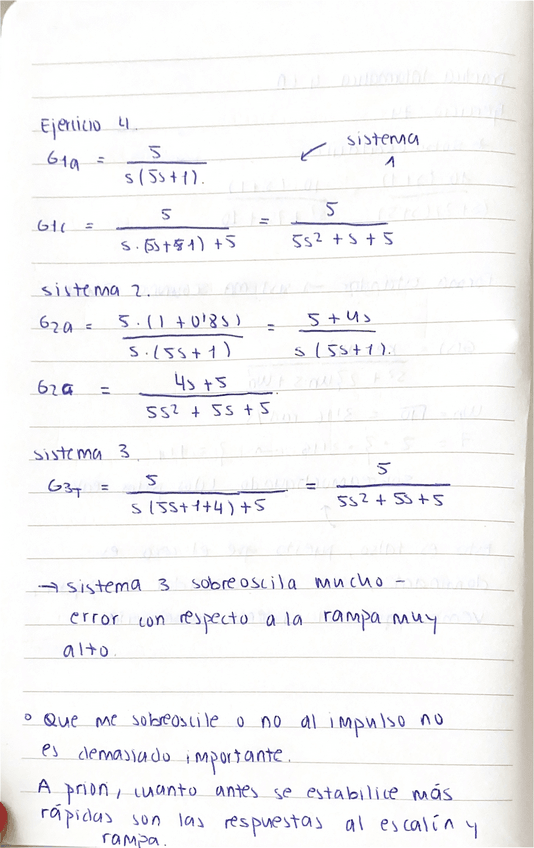 Ejercicio 4.
G1a = 5 / s(5s+1). ↙ sistema 1
G1c = 5 / s·(5s+1)+5 = 5 / 5s² + s + 5
sistema 2.
G2a = 5·(1+0'8s) / s·(5s+1) = 5+4s / s(5s+1).
G2a = 4s+5 / 5s² + 5s + 5
sistema 3
G3T = 5 / s(5s+1+4)+5 = 5 / 5s² + 5s + 5
→ sistema 3 sobreoscila mucho -
error con respecto a la rampa muy
alto.
° Que me sobreoscile o no al impulso no
es demasiado importante.
A priori, cuanto antes se estabilice más
rápidas son las respuestas al escalín y
rampa.